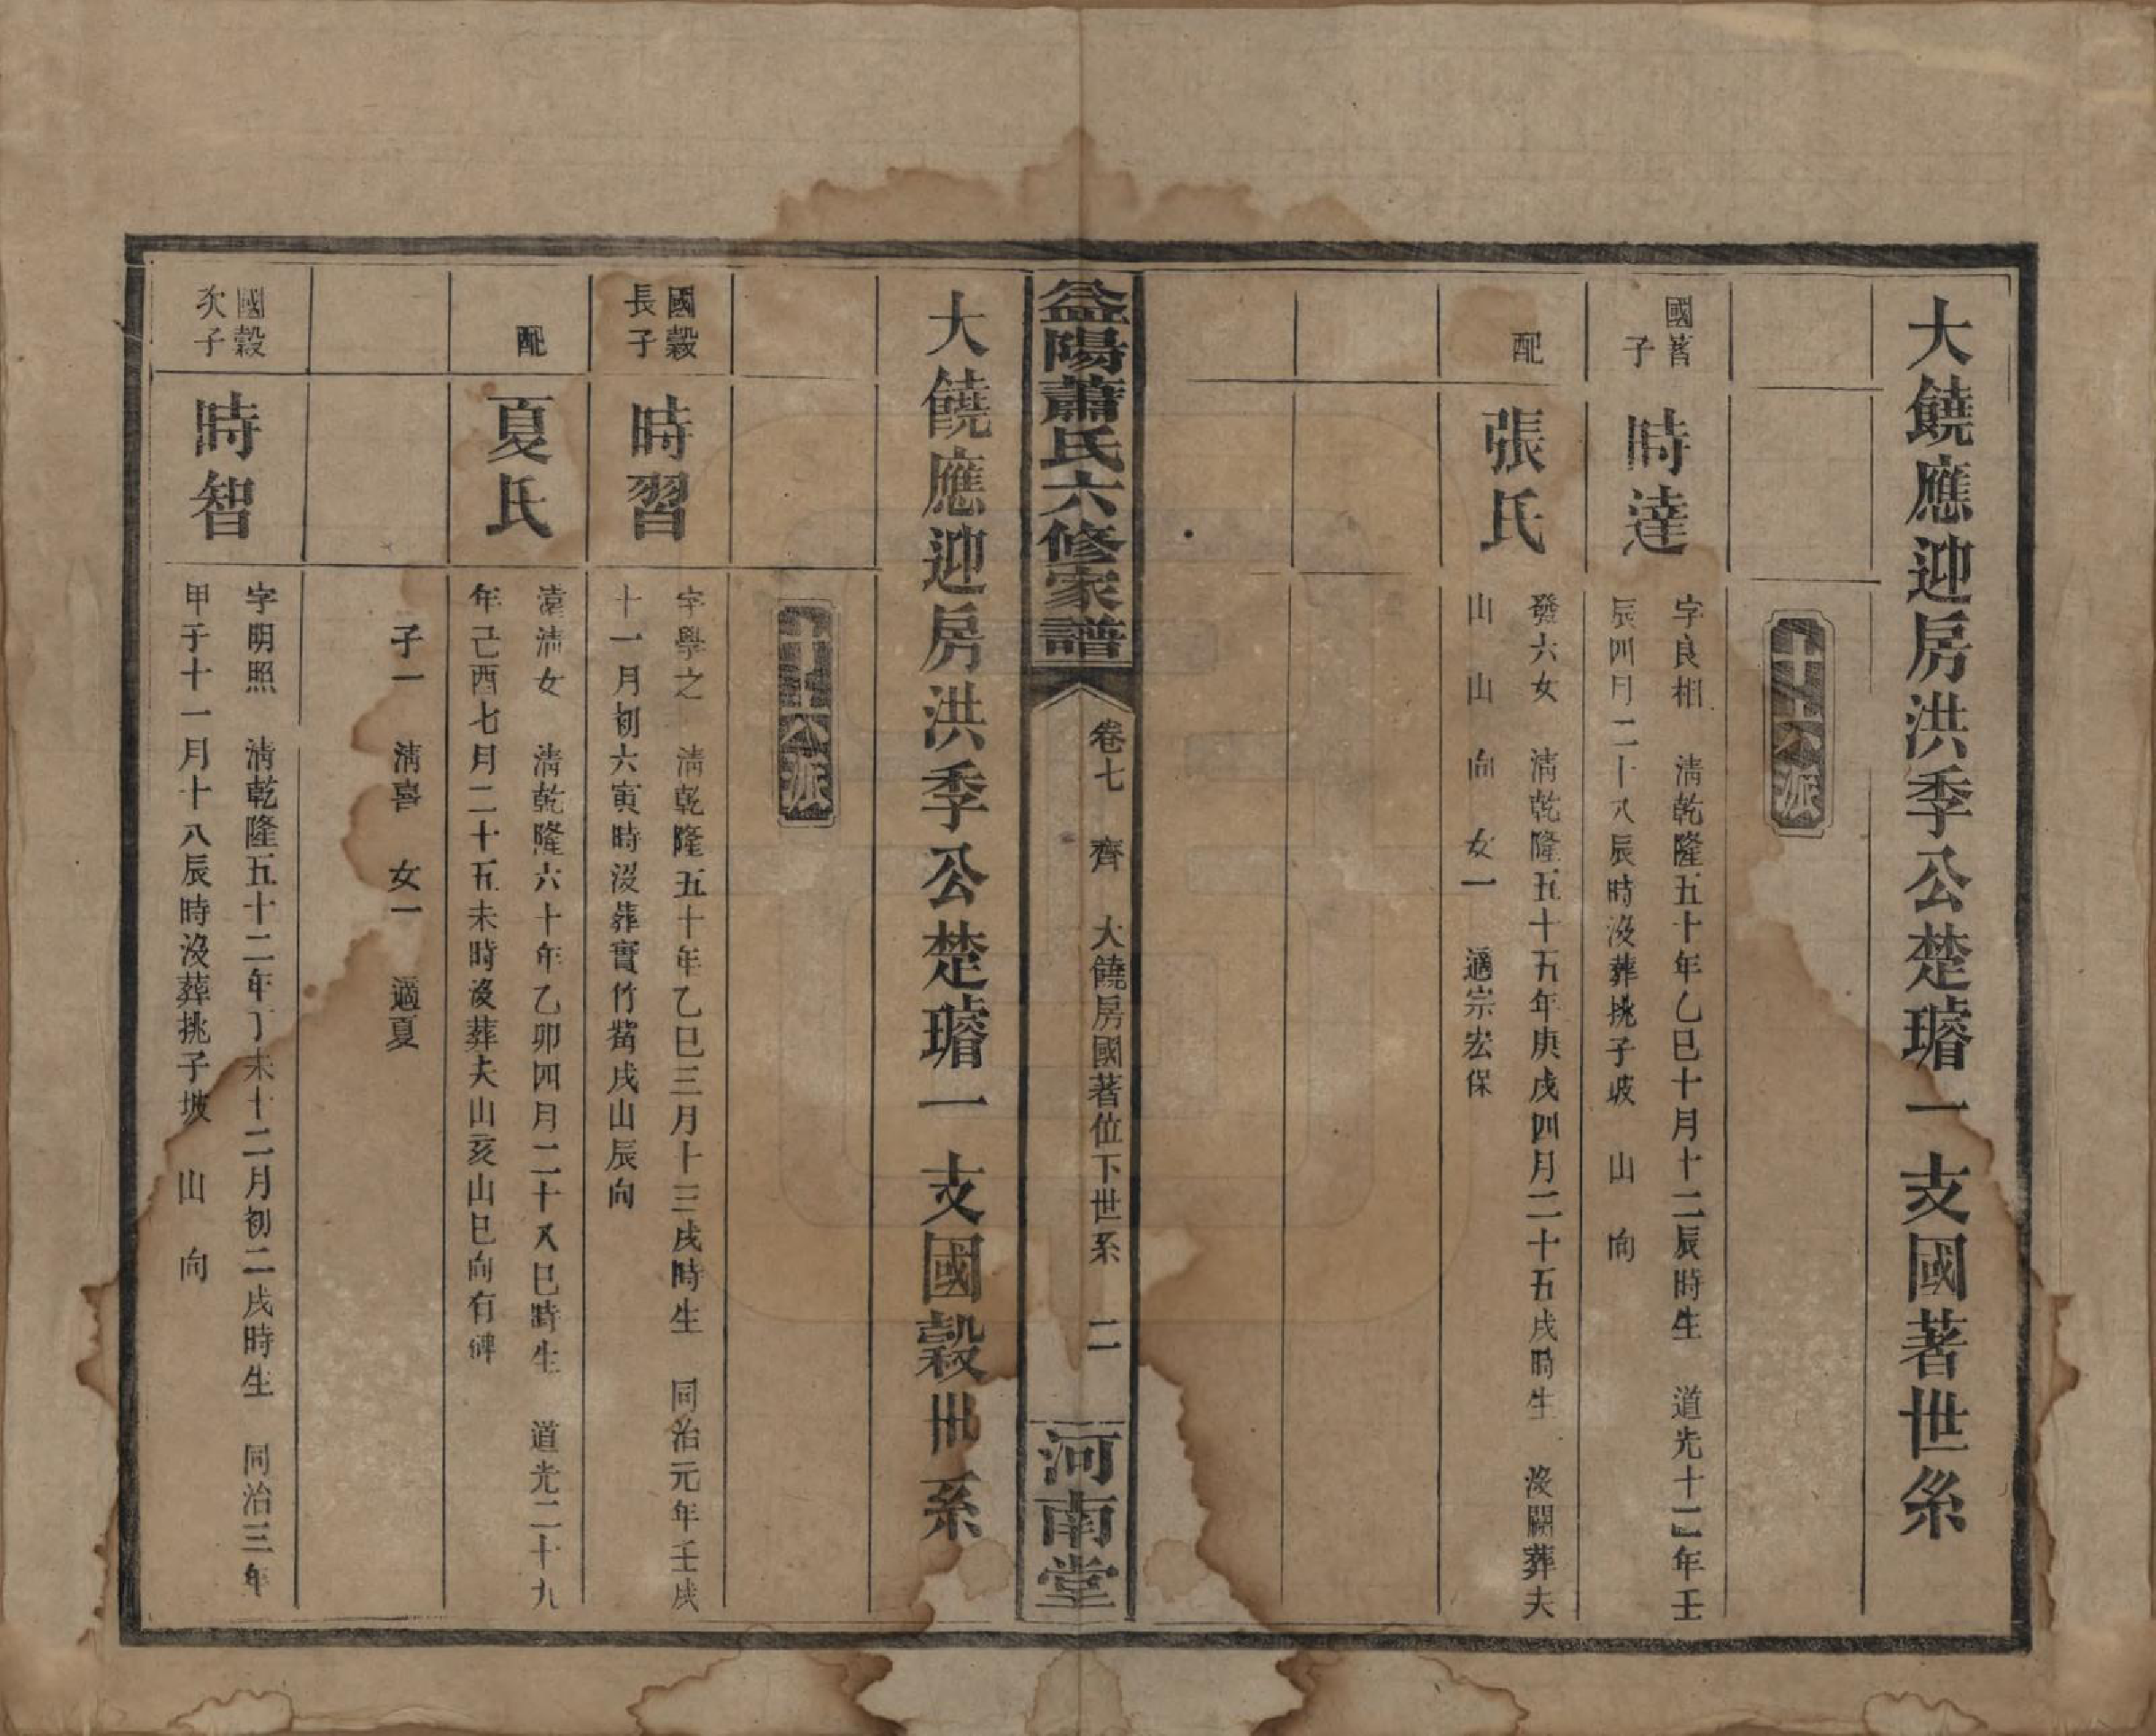 大饒應迎房洪季公楚璿一支國著世系
十六派
國著
子
時達
字良相　清乾隆五十年乙巳十月十二辰時生　道光十二年壬
辰四月二十八辰時沒葬挑子坡　山　向
配
張氏
發六女　清乾隆五十五年庚戌四月二十五戌時生　沒闕葬夫
山　山　向　女一　適宗宏保
益陽蕭氏六修家譜
卷七　齊　大饒房國著位下世系　二
河南堂
大饒應迎房洪季公楚璿一支國穀世系
十六派
國穀
長子
時習
字學之　清乾隆五十年乙巳三月十三戌時生　同治元年壬戌
十一月初六寅時沒葬實竹嵤戌山辰向
配
夏氏
清女　清乾隆六十年乙卯四月二十八巳時生　道光二十九
年己酉七月二十五未時沒葬夫山亥山巳向有碑
子一　清喜　女一　適夏
國穀
次子
時智
字明照　清乾隆五十二年丁未十二月初二戌時生　同治三年
甲子十一月十八辰時沒葬挑子坡　山　向